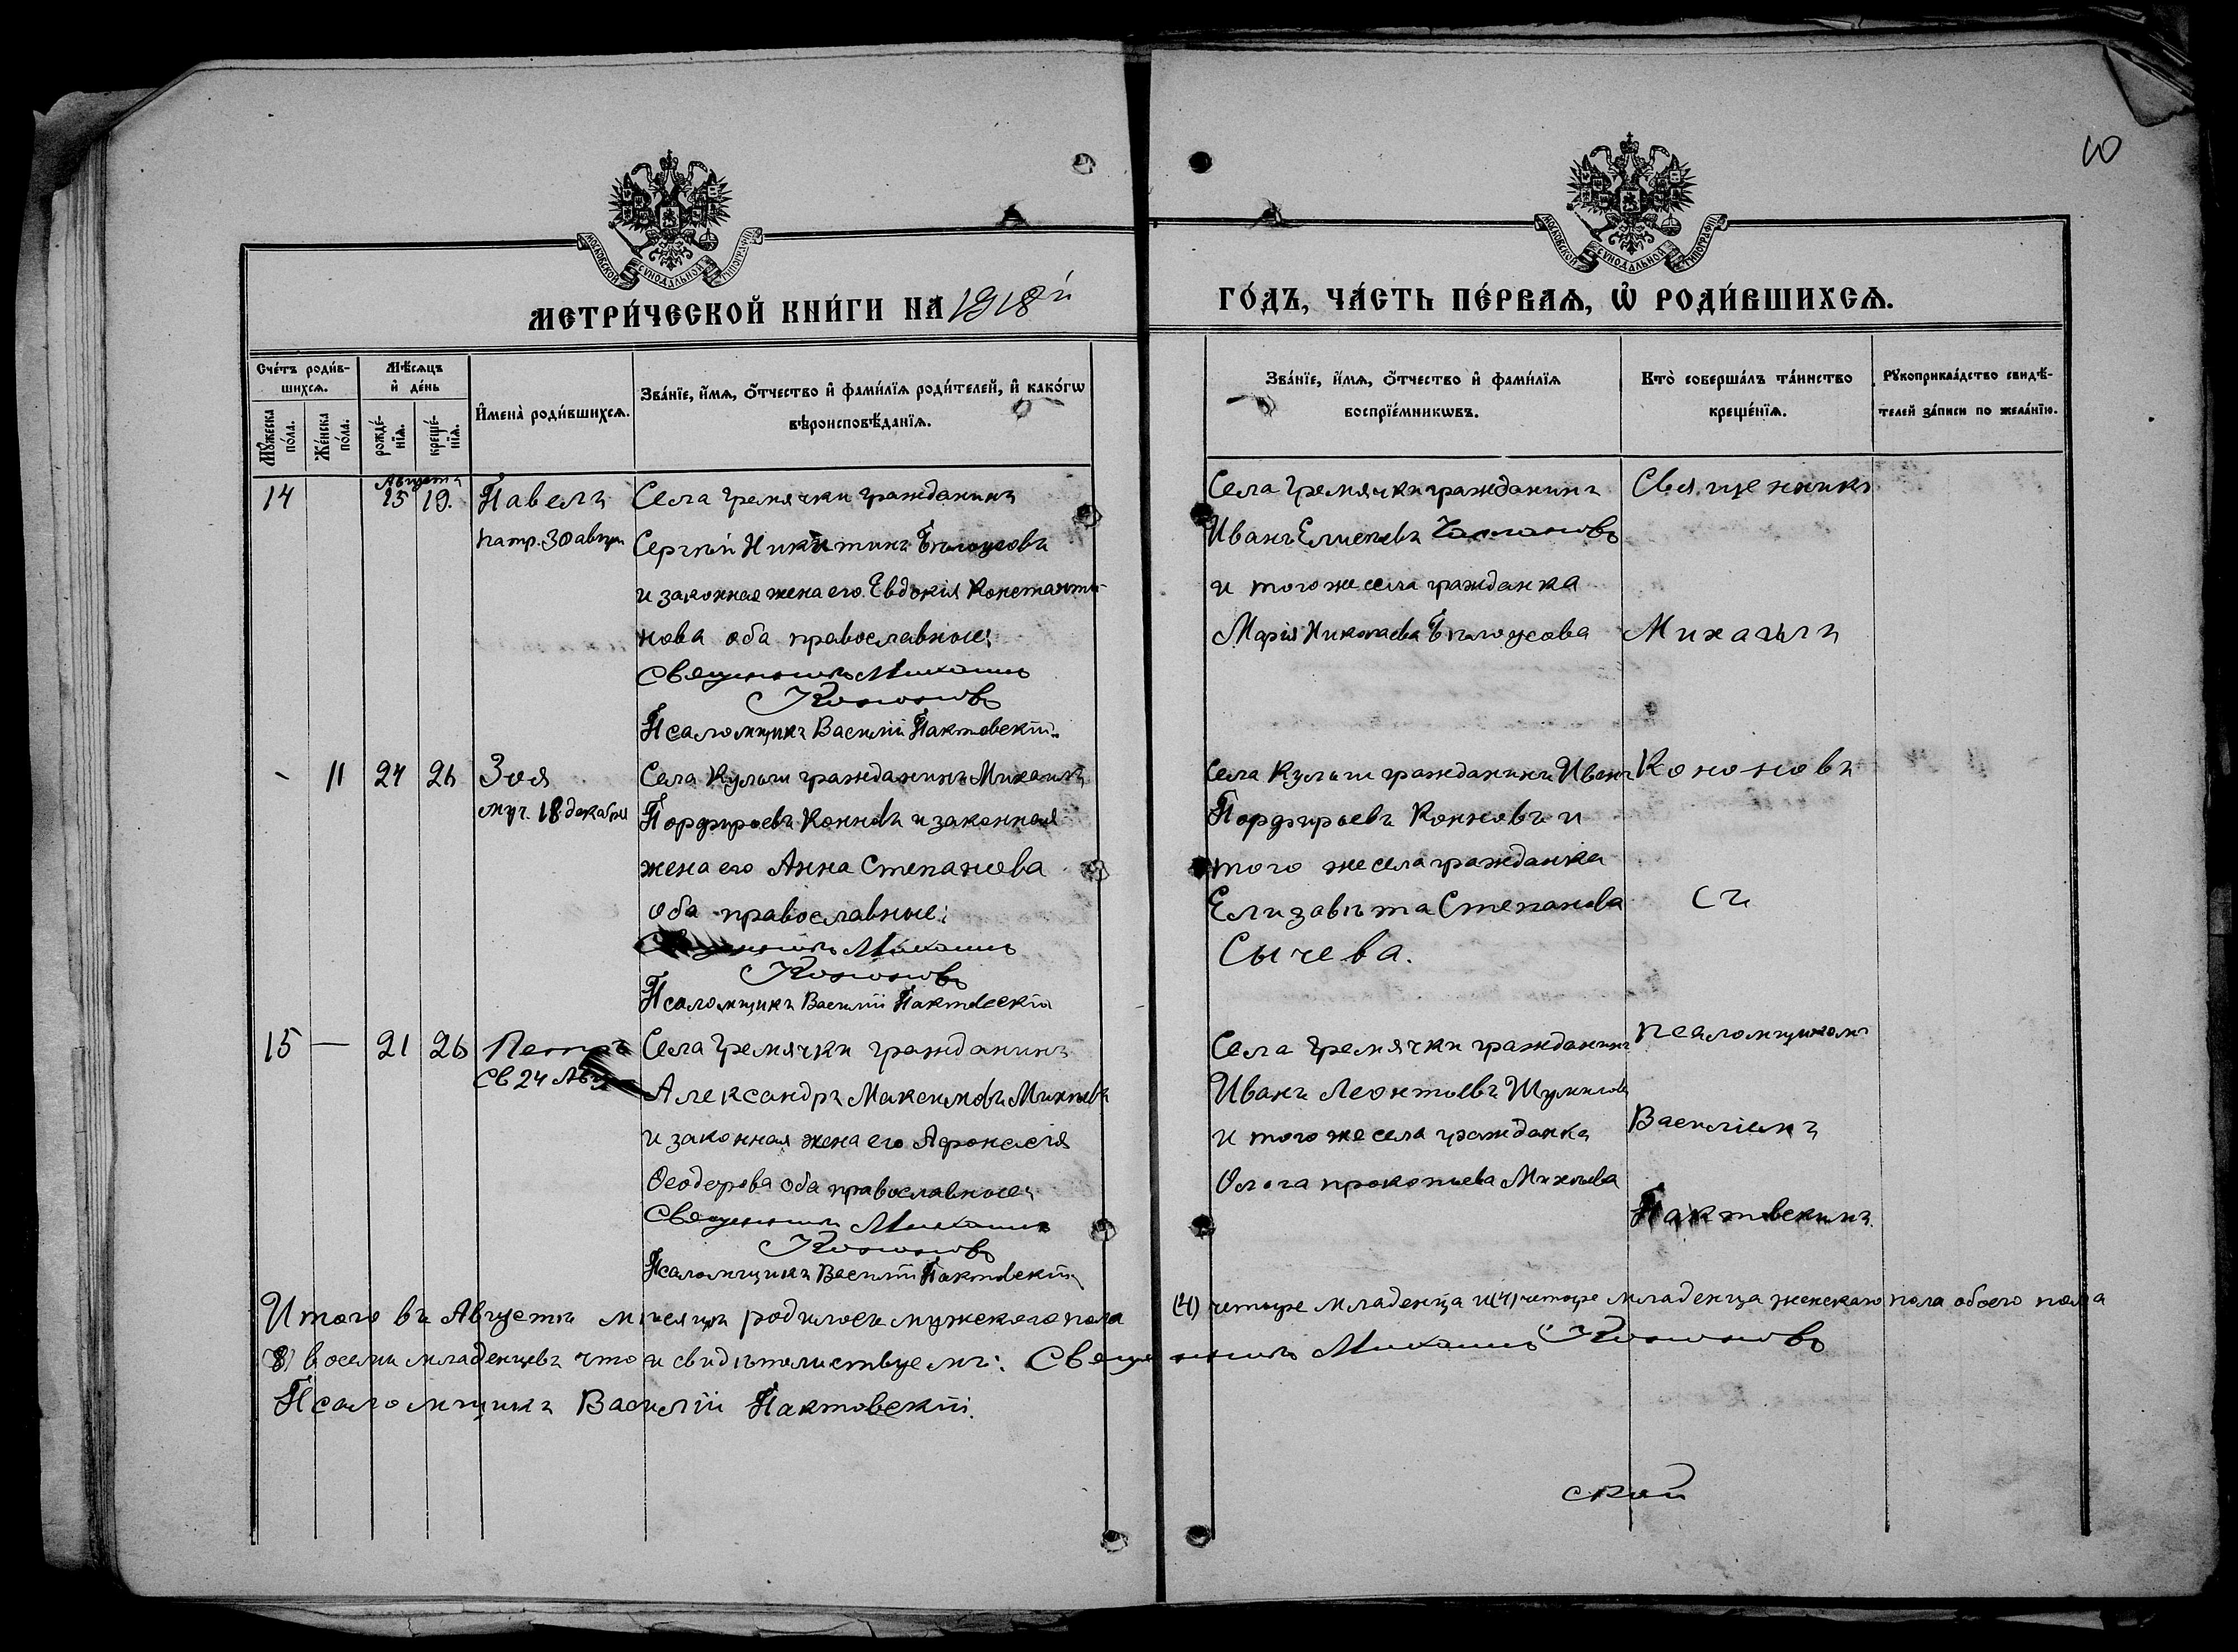 10
МОСКОВСКОЙ СѴНОДАЛЬНОЙ ТИПОГРАФІИ
МОСКОВСКОЙ СѴНОДАЛЬНОЙ ТИПОГРАФІИ
МЕТРИ́ЧЕСКОЙ КНИ́ГИ НА 1918й
ГО́ДЪ, ЧА́СТЬ ПЕ́РВАѦ, Ѡ҆ РОДИ́ВШИХСѦ.
Сче́тъ роди́в-
шихсѧ.
Мꙋ́жеска по́ла.
Же́нска по́ла.
Мѣ́сѧцъ и҆ де́нь
рожде́-
нїѧ.
креще́-
нїѧ.
И҆мена̀ роди́вшихсѧ.
Зва́нїе, и҆́мѧ, ѻ҆́тчество и҆ фами́лїѧ роди́телей, и҆ како́гѡ
вѣроисповѣ́данїѧ.
Зва́нїе, и҆́мѧ, ѻ҆́тчество и҆ фами́лїѧ
воспрїе́мникѡвъ.
Кто̀ соверша́лъ та́инство
креще́нїѧ.
Рꙋкоприкла́дство свидѣ́-
телей за́писи по жела́нїю.
Августъ
14 15 19. Павелъ
патр. 30 август
Села Гремячки гражданинъ
Сергѣй Никитинъ Бѣлоусовъ
и законная жена его Евдокія Константи-
нова оба православные:
Священникъ Михаилъ
Кононовъ
Псаломщикъ Василій Пактовскій.
Села Гремячки гражданинъ
Иванъ Елисѣевъ
и того же села гражданка
Марія Николаева Бѣлоусова
Священникъ
Михаилъ
- 11 24 26 Зоя
муч. 18 декабря
Села Кульши гражданинъ Михаилъ
Порфирьевъ Конновъ и законная
жена его Анна Степанова
оба православные:
Священникъ Михаилъ
Кононовъ
Псаломщикъ Василій Пактовскій
Села Кульши гражданинъ Иванъ
Порфирьевъ Конновъ и
того же села гражданка
Елизавѣта Степанова
Сычева.
Кононовъ
съ
15 — 21 26 Петръ
Св 24 Авгус
Села Гремячки гражданинъ
Александръ Максимовъ Михѣевъ
и законная жена его Афонасія
Ѳеодорова оба православные:
Священникъ Михаилъ
Кононовъ
Псаломщикъ Василій Пактовскій
Села Гремячки гражданинъ
Иванъ Леонтьевъ Шумиловъ
и того же села гражданка
Ольга Прокопьева Михѣева
псаломщикомъ
Василіемъ
Пактовскимъ.
Итого въ Августѣ мѣсяцѣ родилось мужескаго пола (4) четыре младенца и (4) четыре младенца женскаго пола обоего пола
(8) восемь младенцевъ что и свидѣтельствуемъ: Священникъ Михаилъ Кононовъ
Псаломщикъ Василій Пактовскій.
ской